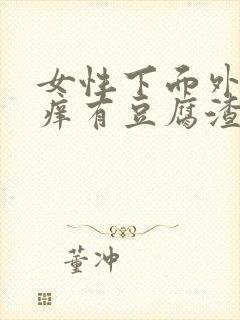 女性下面外
痒有豆腐渣
董冲